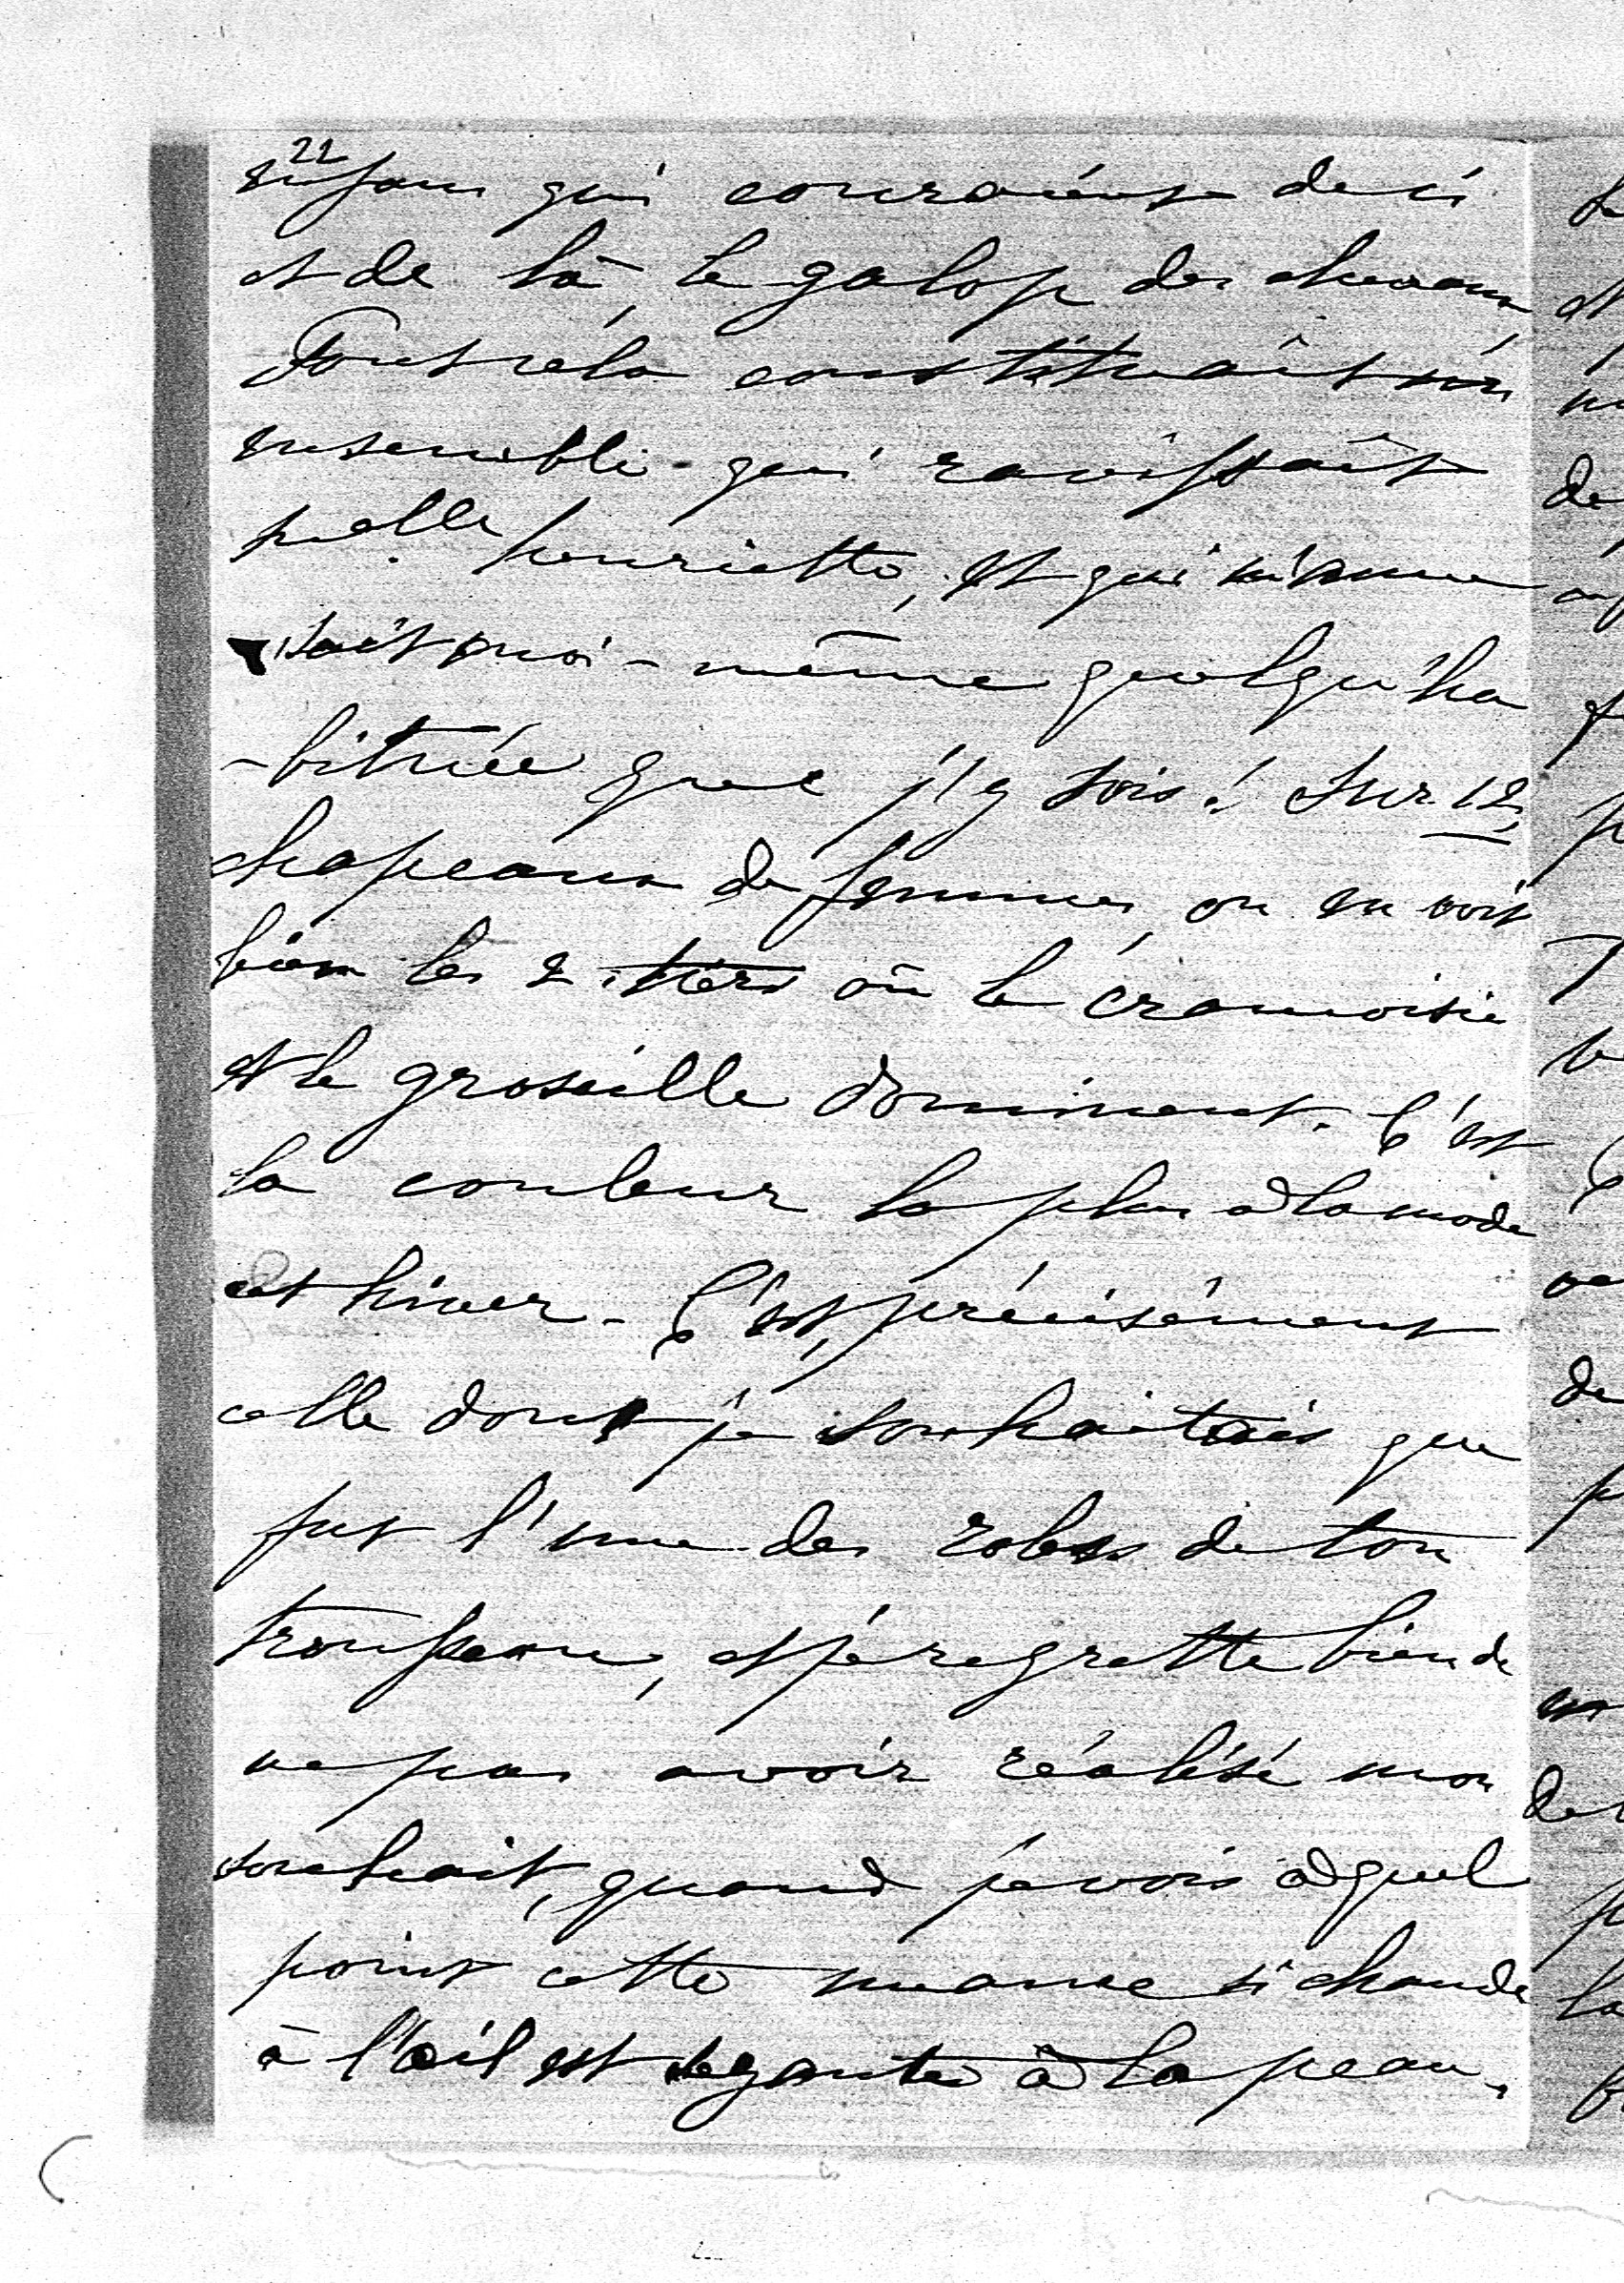 22
enfans qui couraient de ci
et de là, le galop des chevaux,
Tout cela constituait un
ensemble qui ravissait
melle henriette, et qui m'amu
-sait moi-même quelqu'ha
-bituée que j'y sois! Sur 12
chapeaux de femmes, on en voit
bien les 2 tiers où le cramoisie
et le groseille dominent. C'est
la couleur la plus à la mode
cet hiver. C'est précisément
celle dont je souhaitais que
fut l'une des robes de ton
trousseau, et je regrette bien de
ne pas avoir réalisé mon
souhait, quand je vois à quel
point cette nuance si chaude
à l'œil est à la peau.